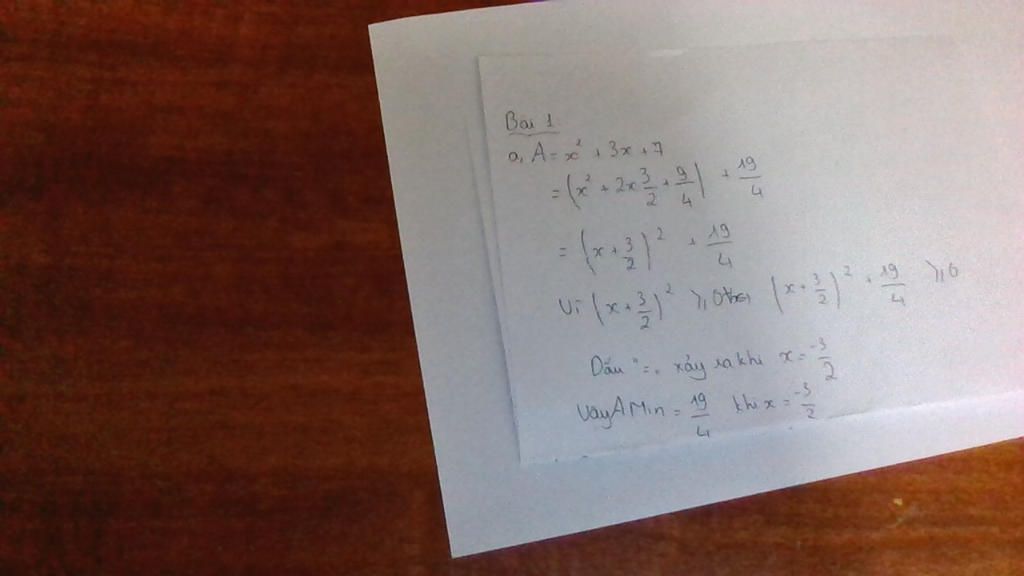 Bài 1
a, A = x² + 3x + 7
= (x² + 2x 3/2 + 9/4) + 19/4
= (x + 3/2)² + 19/4
Vì (x + 3/2)² ≥ 0 (x + 3/2)² + 19/4 ≥ 0
Dấu "=" xảy ra khi x = -3/2
Vậy A Min = 19/4 khi x = -3/2